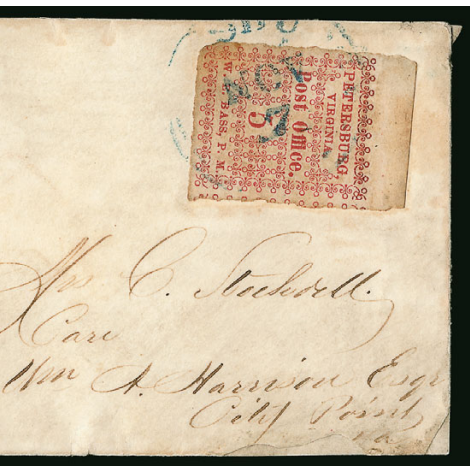 PETERSBURG
VIRGINIA.
Post Office.
5
W. E. BASS, P. M.
NOV
Mrs C. Stockdell.
Care
Wm A. Harrison Esqr
City Point
Va